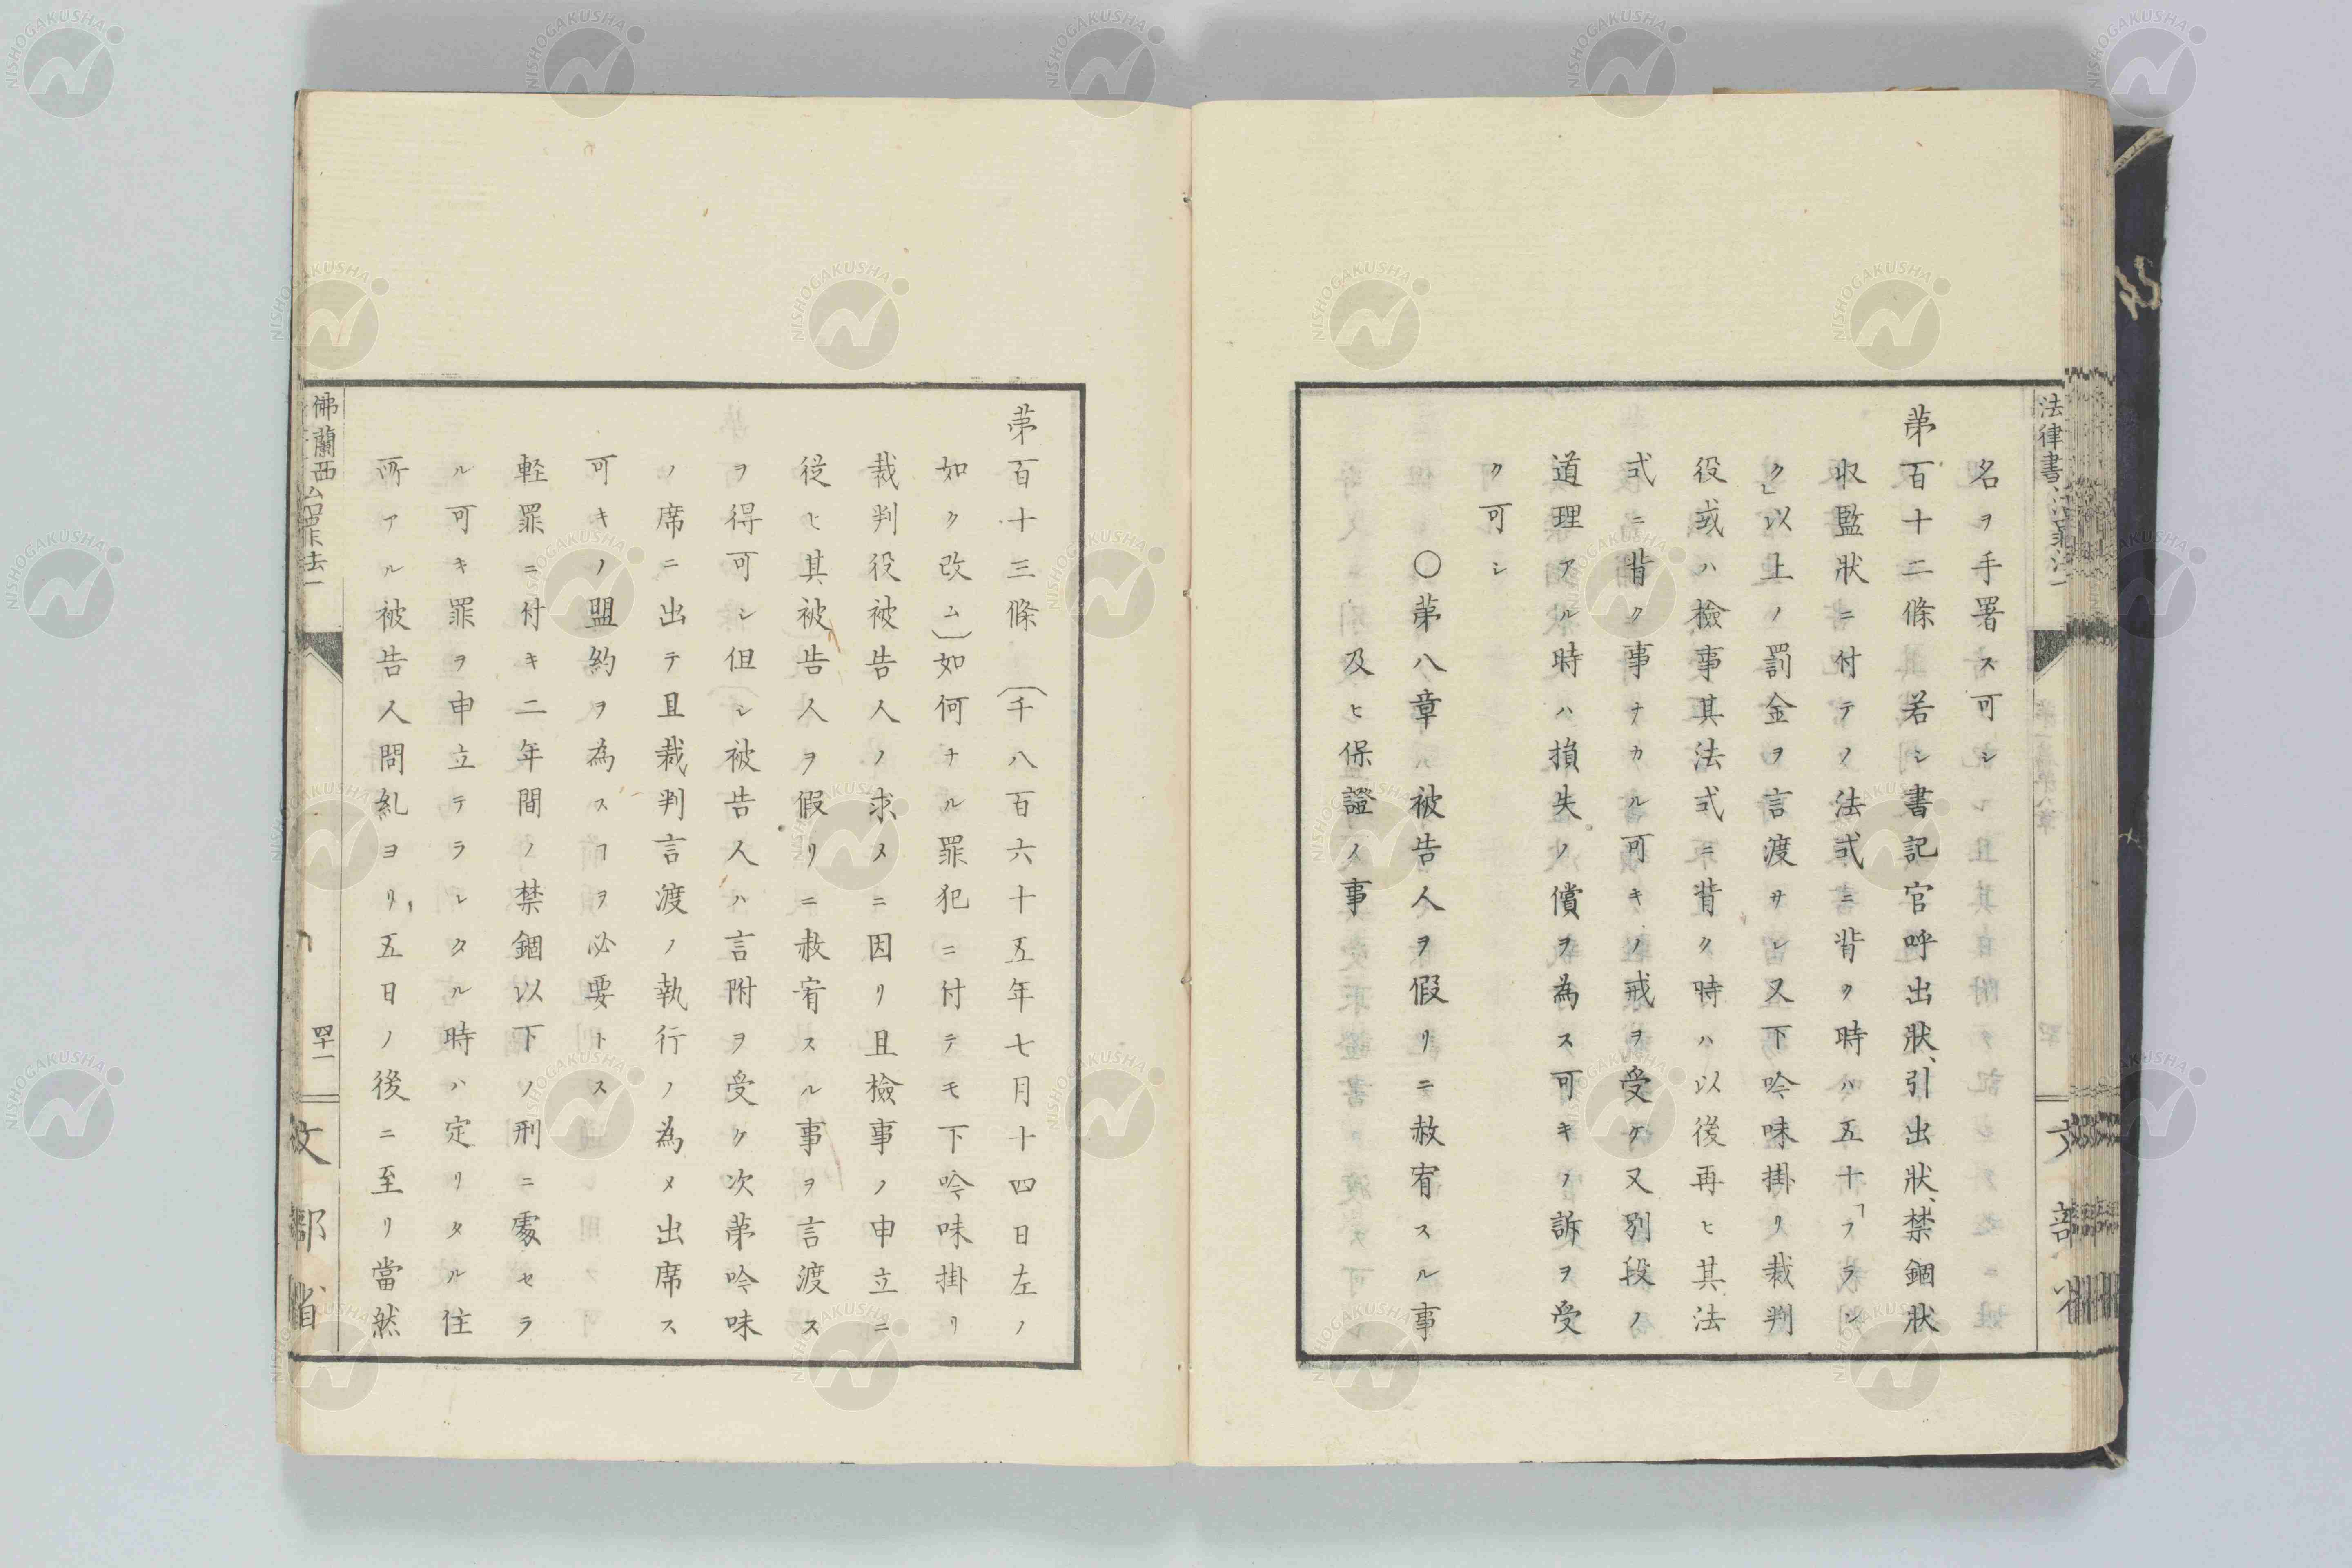 名ヲ手署ス可シ
第百十二條　若シ書記官呼出狀、引出狀、禁錮狀
収監狀ニ付テノ法式ニ背ク時ハ五十「フランク」以上ノ罰金ヲ言渡サレ又下吟味掛リ裁判
役或ハ檢事其法式ニ背ク時ハ以後再ヒ其法
式ニ背ク事ナカル可キノ戒ヲ受ケ又別段ノ
道理アル時ハ損失ノ償ヲ為ス可キノ訴ヲ受
ク可シ
〇第八章　被告人ヲ假リニ赦宥スル事
及ヒ保證ノ事
第百十三條　（千八百六十五年七月十四日左ノ
如ク改ム）如何ナル罪犯ニ付テモ下吟味掛リ
裁判役被告人ノ求メニ因リ且檢事ノ申立ニ
從ヒ其被告人ヲ假リニ赦宥スル事ヲ言渡ス
ヲ得可シ但シ被告人ハ言附ヲ受ケ次第吟味
ノ席ニ出テ且裁判言渡ノ執行ノ為メ出席ス
可キノ盟約ヲ為スヿヲ必要トス
軽罪ニ付キ二年間ノ禁錮以下ノ刑ニ處セラ
ル可キ罪ヲ申立テラレタル時ハ定リタル住
所アル被告人問糺ヨリ五日ノ後ニ至リ當然
佛蘭西治罪法一
四十一
文部省